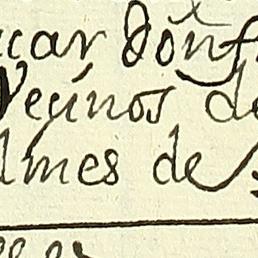 car don
Vecinos de
lmes de